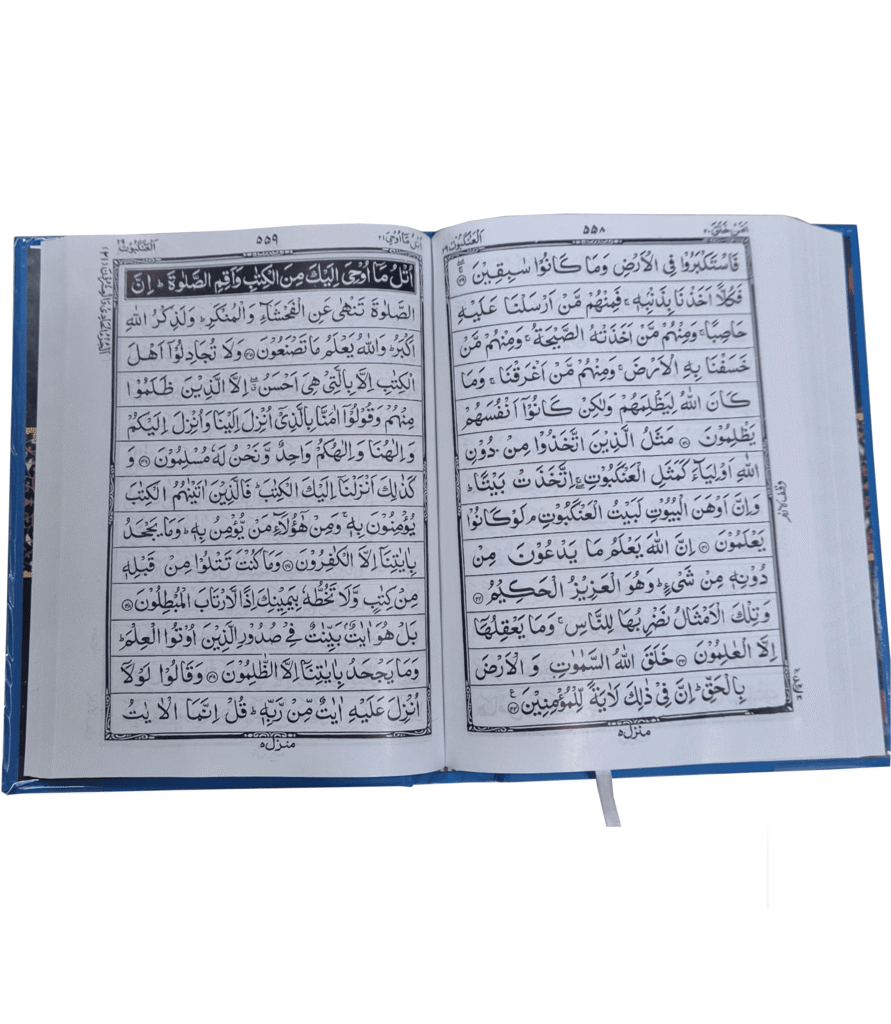 امن خلق ٢٠
٥٥٨
العنكبوت ٢٩
فَاسْتَكْبَرُوْا فِي الْاَرْضِ وَمَا كَانُوْا سٰبِقِيْنَ ﴿٣٩﴾
فَكُلًّا اَخَذْنَا بِذَنْۢبِهٖ ۚ فَمِنْهُمْ مَّنْ اَرْسَلْنَا عَلَيْهِ
حَاصِبًا ۚ وَمِنْهُمْ مَّنْ اَخَذَتْهُ الصَّيْحَةُ ۚ وَمِنْهُمْ مَّنْ
خَسَفْنَا بِهِ الْاَرْضَ ۚ وَمِنْهُمْ مَّنْ اَغْرَقْنَا ۚ وَمَا
كَانَ اللّٰهُ لِيَظْلِمَهُمْ وَلٰكِنْ كَانُوْۤا اَنْفُسَهُمْ
يَظْلِمُوْنَ ﴿٤٠﴾ مَثَلُ الَّذِيْنَ اتَّخَذُوْا مِنْ دُوْنِ
اللّٰهِ اَوْلِيَآءَ كَمَثَلِ الْعَنْكَبُوْتِ ۚ اِتَّخَذَتْ بَيْتًا ؕ
وَاِنَّ اَوْهَنَ الْبُيُوْتِ لَبَيْتُ الْعَنْكَبُوْتِ ۘ لَوْ كَانُوْا
يَعْلَمُوْنَ ﴿٤١﴾ اِنَّ اللّٰهَ يَعْلَمُ مَا يَدْعُوْنَ مِنْ
دُوْنِهٖ مِنْ شَيْءٍ ؕ وَهُوَ الْعَزِيْزُ الْحَكِيْمُ ﴿٤٢﴾
وَتِلْكَ الْاَمْثَالُ نَضْرِبُهَا لِلنَّاسِ ۚ وَمَا يَعْقِلُهَاۤ
اِلَّا الْعٰلِمُوْنَ ﴿٤٣﴾ خَلَقَ اللّٰهُ السَّمٰوٰتِ وَ الْاَرْضَ
بِالْحَقِّ ؕ اِنَّ فِيْ ذٰلِكَ لَاٰيَةً لِّلْمُؤْمِنِيْنَ ﴿٤٤﴾
منزل ٥
اتل ما اوحى ٢١
٥٥٩
العنكبوت ٢٩
اُتْلُ مَاۤ اُوْحِيَ اِلَيْكَ مِنَ الْكِتٰبِ وَاَقِمِ الصَّلٰوةَ ؕ اِنَّ
الصَّلٰوةَ تَنْهٰى عَنِ الْفَحْشَآءِ وَالْمُنْكَرِ ؕ وَلَذِكْرُ اللّٰهِ
اَكْبَرُ ؕ وَاللّٰهُ يَعْلَمُ مَا تَصْنَعُوْنَ ﴿٤٥﴾ وَلَا تُجَادِلُوْۤا اَهْلَ
الْكِتٰبِ اِلَّا بِالَّتِيْ هِيَ اَحْسَنُ ۖ اِلَّا الَّذِيْنَ ظَلَمُوْا
مِنْهُمْ وَقُوْلُوْۤا اٰمَنَّا بِالَّذِيْۤ اُنْزِلَ اِلَيْنَا وَاُنْزِلَ اِلَيْكُمْ
وَاِلٰهُنَا وَاِلٰهُكُمْ وَاحِدٌ وَّنَحْنُ لَهٗ مُسْلِمُوْنَ ﴿٤٦﴾ وَ
كَذٰلِكَ اَنْزَلْنَاۤ اِلَيْكَ الْكِتٰبَ ؕ فَالَّذِيْنَ اٰتَيْنٰهُمُ الْكِتٰبَ
يُؤْمِنُوْنَ بِهٖ ۚ وَمِنْ هٰۤؤُلَآءِ مَنْ يُّؤْمِنُ بِهٖ ؕ وَمَا يَجْحَدُ
بِاٰيٰتِنَاۤ اِلَّا الْكٰفِرُوْنَ ﴿٤٧﴾ وَمَا كُنْتَ تَتْلُوْا مِنْ قَبْلِهٖ
مِنْ كِتٰبٍ وَّلَا تَخُطُّهٗ بِيَمِيْنِكَ اِذًا لَّارْتَابَ الْمُبْطِلُوْنَ ﴿٤٨﴾
بَلْ هُوَ اٰيٰتٌۢ بَيِّنٰتٌ فِيْ صُدُوْرِ الَّذِيْنَ اُوْتُوا الْعِلْمَ ؕ
وَمَا يَجْحَدُ بِاٰيٰتِنَاۤ اِلَّا الظّٰلِمُوْنَ ﴿٤٩﴾ وَقَالُوْا لَوْلَاۤ
اُنْزِلَ عَلَيْهِ اٰيٰتٌ مِّنْ رَّبِّهٖ ؕ قُلْ اِنَّمَا الْاٰيٰتُ
منزل ٥